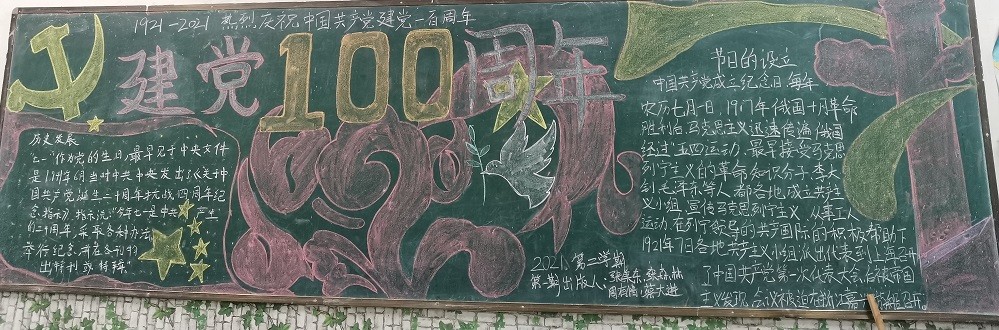 1921-2021 热烈庆祝中国共产党建党一百周年
建党100周年
历史发展
"七一"作为党的生日,最早见于中央文件
是1941年6月当时中共中央发出《关于中
国共产党诞生二十周年抗战四周年纪
念指示》,指示说:"今年七一是中共产生
的二十周年,采取各种办法,
举行纪念,并在各刊物
出特刊或特辑."
2021.第二学期
第一期出版人:
节日的设立
中国共产党成立纪念日,每年
农历七月一日,1917年俄国十月革命
胜利后马克思主义迅速传遍俄国
经过"五四运动",最早接受马克思
列宁主义的革命知识分子李大
钊毛泽东等人都各地成立共产主
义小组,宣传马克思列宁主义,从事工人
运动.在列宁领导的共产国际的积极帮助下
1921年7日各地共产主义小组派出代表到上海召开
了中国共产党第一次代表大会,后被帝国
主义发现,会议被迫在浙江嘉